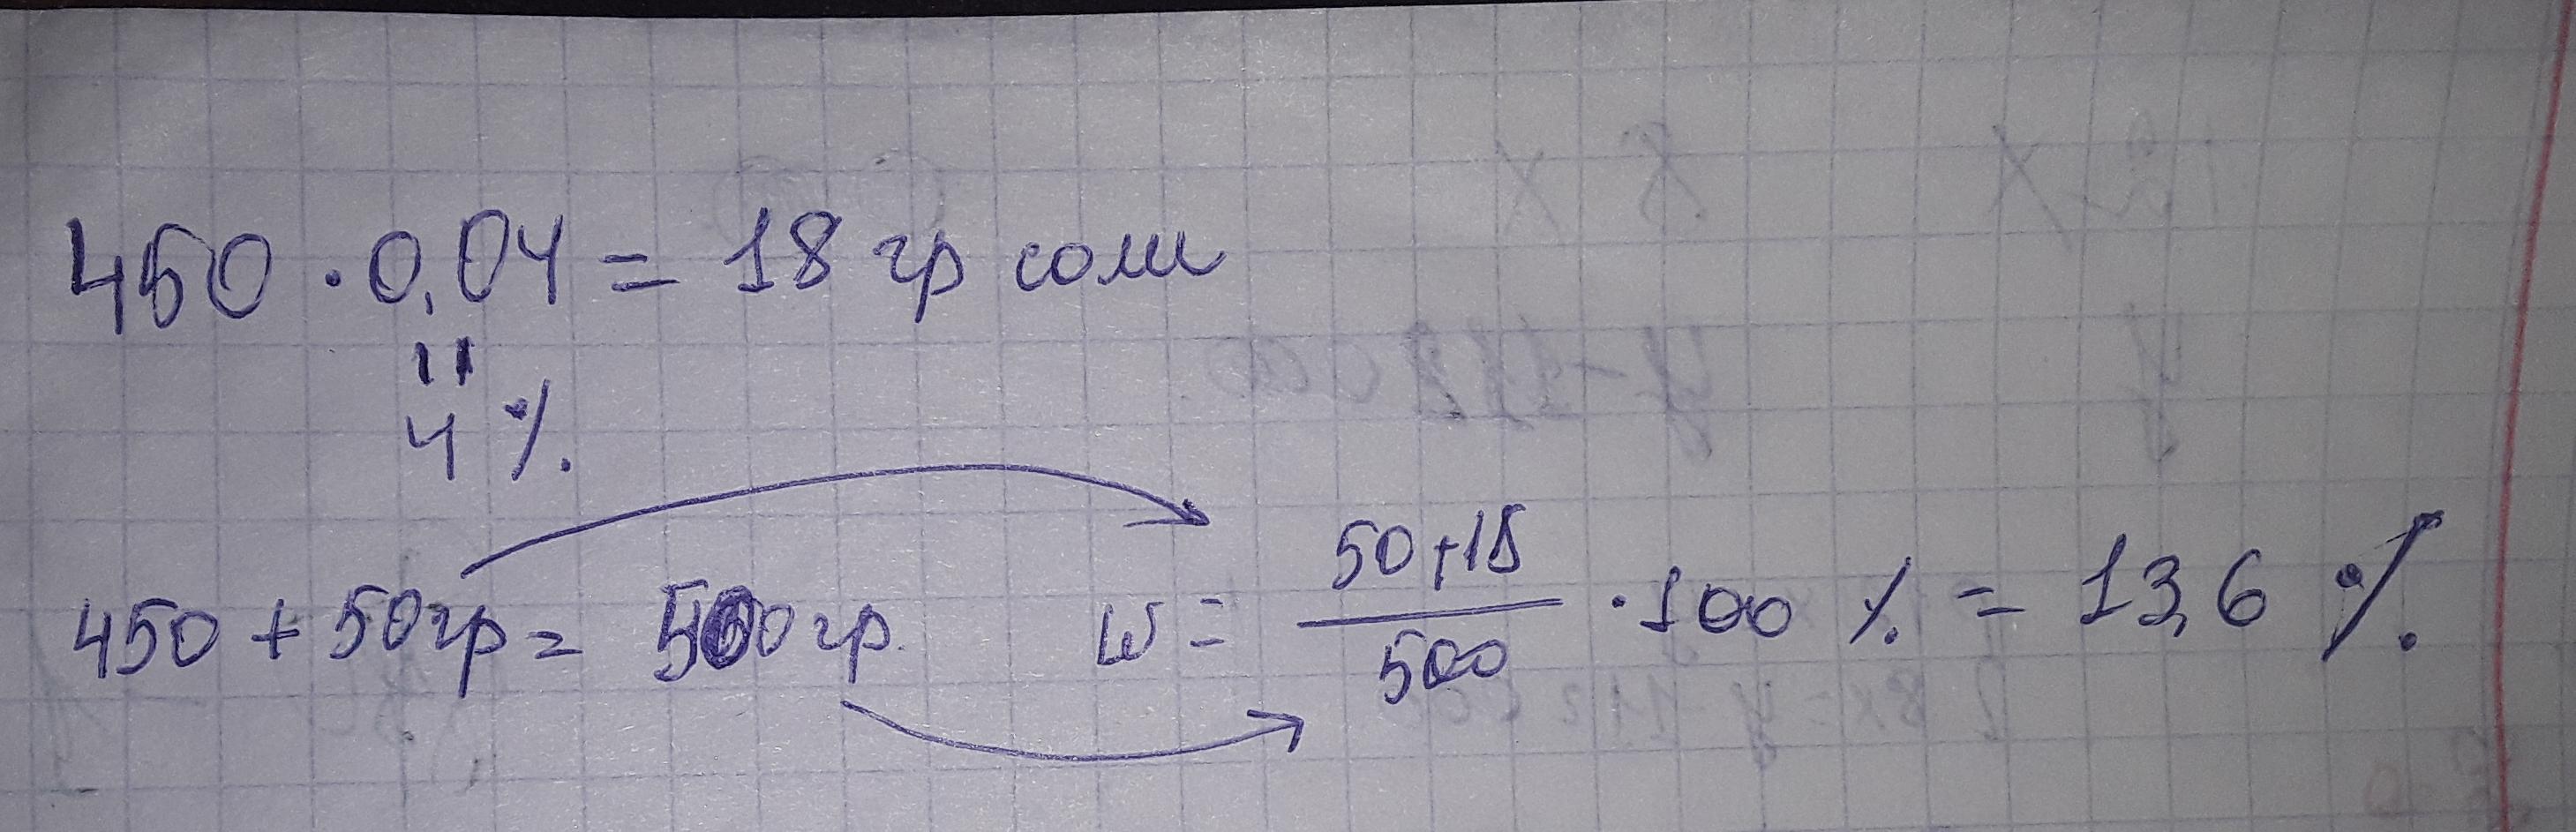 450 · 0,04 = 18 гр соли
"
4 %
450 + 50гр = 500гр. w = 50+18 / 500 · 100 % = 13,6 %